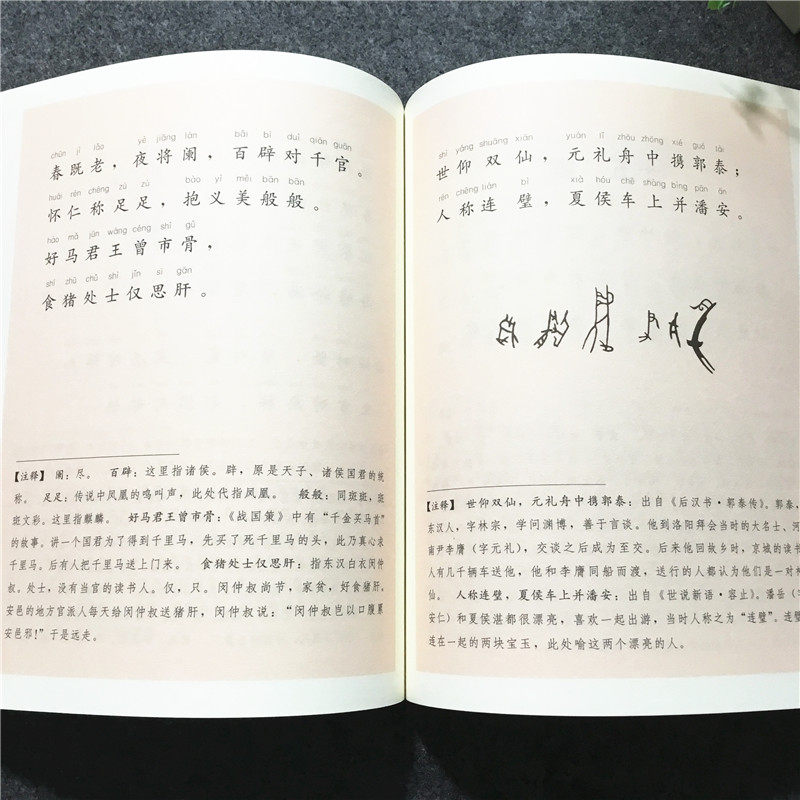 chūn jì lǎo yè jiāng lán bǎi bì duì qiān guān
春既老，夜将阑，百辟对千官。
huái rén chēng zú zú bào yì měi bān bān
怀仁称足足，抱义美般般。
hào mǎ jūn wáng céng shì gǔ
好马君王曾市骨，
shí zhū chǔ shì jǐn sī gān
食猪处士仅思肝。
【注释】 阑：尽。 百辟：这里指诸侯。辟，原是天子、诸侯国君的统
称。 足足：传说中凤凰的鸣叫声，此处代指凤凰。 般般：同斑斑，斑
斑文彩。这里指麒麟。 好马君王曾市骨：《战国策》中有“千金买马首”
的故事。讲一个国君为了得到千里马，先买了死千里马的头，此乃真心求
千里马。后有人把千里马送上门来。 食猪处士仅思肝：指东汉白衣闵仲
叔。处士，没有当官的读书人。仅，只。闵仲叔尚节，家贫，好食猪肝。
安邑的地方官派人每天给闵仲叔送猪肝，闵仲叔说：“闵仲叔岂以口腹累
安邑邪！”于是远走。
shì yǎng shuāng xiān yuán lǐ zhōu zhōng xié guō tài
世仰双仙，元礼舟中携郭泰；
rén chēng lián bì xià hóu chē shàng bìng pān ān
人称连璧，夏侯车上并潘安。
【注释】 世仰双仙，元礼舟中携郭泰：出自《后汉书·郭泰传》。郭泰，
东汉人，字林宗，学问渊博，善于言谈。他到洛阳拜会当时的大名士、河
南尹李膺（字元礼），交谈之后成为至交。后来他回故乡时，京城的读书
人有几千辆车送他，他和李膺同船而渡，送行的人都认为他们是一对神
仙。 人称连璧，夏侯车上并潘安：出自《世说新语·容止》。潘岳（字
安仁）和夏侯湛都很漂亮，喜欢一起出游，当时人称之为“连璧”。连璧
连在一起的两块宝玉，此处喻这两个漂亮的人。